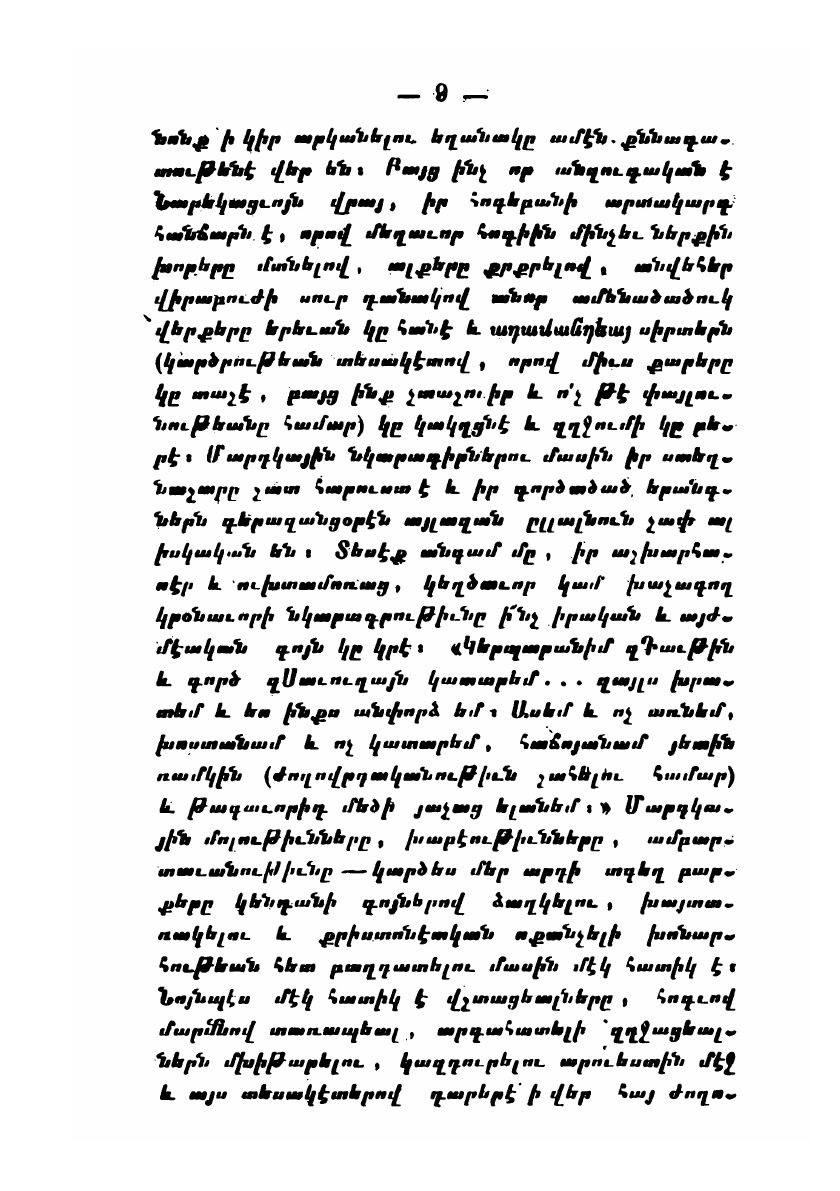 — 9 —
նոնք ի կիր արկանելու եղանակը ամէն քննադա-
տութենէ վեր են։ Բայց ինչ որ անզուգական է
Նարեկացւոյն վրայ, իր հոգեբանի արտակարգ
հանճարն է, որով մեղաւոր հոգիին մինչեւ ներքին
խորերը մտնելով, ալքերը քրքրելով, անվեհեր
վիրաբուժի սուր դանակով անոր ամենածածուկ
վէրքերը երեւան կը հանէ և ադամանդեայ սիրտերն
(կարծրութեան տեսակէտով, որով միւս քարերը
կը տաշէ, բայց ինք չտաշուիր և ո՛չ թէ փայլու-
նութեանը համար) կը կակղցնէ և զղջումի կը բե-
րէ։ Մարդկային նկարագիրներու մասին իր ստեղ-
նաշարը շատ հարուստ է և իր գործածած երանգ-
ներն գերազանցօրէն այլազան ըլլալնուն չափ ալ
իսկական են։ Տեսէք անգամ մը, իր աշխարհա-
սէր և ուխտամոռաց, կեղծաւոր կամ խաչագող
կրօնաւորի նկարագրութիւնը ի՜նչ իրական և այժ-
մէական գոյն կը կրէ։ «Կերպարանիմ զԴաւիթն
և գործ զՍաւուղայն կատարեմ... զայլս խրա-
տեմ և ես ինքս անփորձ եմ։ Ասեմ և ոչ առնեմ,
խոստանամ և ոչ կատարեմ, հաճոյանամ յետին
ռամկին (ժողովրդականութիւն շահելու համար)
և Թագաւորիդ մեծի յաչաց ելանեմ։» Մարդկա-
յին մոլութիւնները, խաբէութիւնները, ամբար-
տաւանութիւնը — կարծես մեր արդի տգեղ բար-
քերը կենդանի գոյներով ձաղկելու, խայտա-
ռակելու և քրիստոնէական սքանչելի խոնար-
հութեան հետ բաղդատելու մասին մէկ հատիկ է։
Նոյնպէս մէկ հատիկ է վշտացեալները, հոգւով
մարմնով տառապեալ, արգահատելի զղջացեալ-
ներն մխիթարելու, կազդուրելու արուեստին մէջ
և այս տեսակէտերով դարերէ ի վեր հայ ժողո-